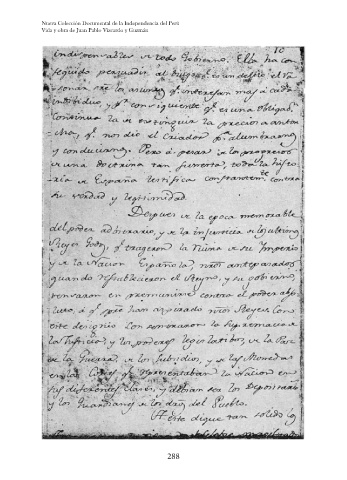 Nueva Colección Documental de la Independencia del Perú
Vida y obra de Juan Pablo Viscardo y Guzmán
10
indispensables de todo Gobierno. Ella ha con
seguido persuadir al Pueblo es un delito el ra
sonar sre los asuntos q.e interesan mas á cada
individuo, y p.r consiguiente q.e es una obligac.n
continua la de extinguir la preciosa antor
cha, q.e nos dió el Criador p.a alumbrarnos
y conducirnos. Pero á pesar de los progresos
de una doctrina tan funesta, toda la histo
ria de España testifica constantem.te contra
su verdad y legitimidad.
Despues de la epoca memorable
del poder arbitrario, y de la injusticia de los ultimos
Reyes Godos, q.e trageron la ruina de su Imperio
y de la Nacion Española, nros antepasados
quando restablecieron el Reyno, y su gobierno,
pensaron en premunirse contra el poder abso
luto, á q.e spre han aspirado nros Reyes. Con
este designio con la Supremacia de
la Justicia, y los poderes legislativos, de la Paz
de la Guerra, de los Subsidios, y de las Monedas
en las Cortes q.e representaban la Nacion en
sus diferentes clases, y debian ser los Depositarios
y los Guardianes de los dros del Pueblo.
A este dique tan solido los
288